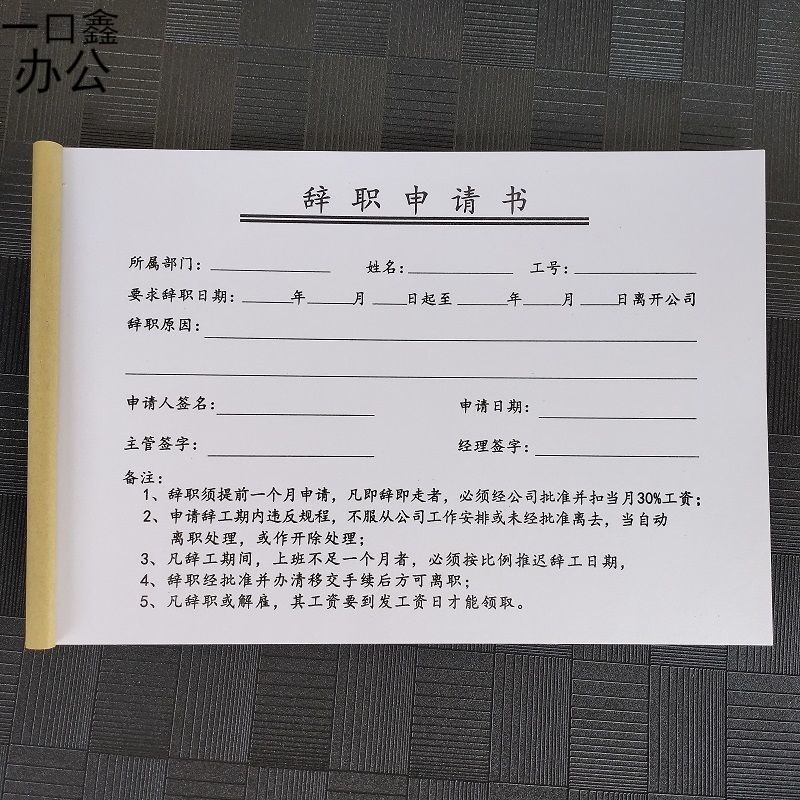 一口鑫
办公
辞职申请书
所属部门：____________ 姓名：____________ 工号：____________
要求辞职日期：______年______月____日起至______年______月____日离开公司
辞职原因：____________
申请人签名：____________ 申请日期：____________
主管签字：____________ 经理签字：____________
备注：
1、辞职须提前一个月申请，凡即辞即走者，必须经公司批准并扣当月30%工资；
2、申请辞工期内违反规程，不服从公司工作安排或未经批准离去，当自动
离职处理，或作开除处理；
3、凡辞工期间，上班不足一个月者，必须按比例推迟辞工日期，
4、辞职经批准并办清移交手续后方可离职；
5、凡辞职或解雇，其工资要到发工资日才能领取。